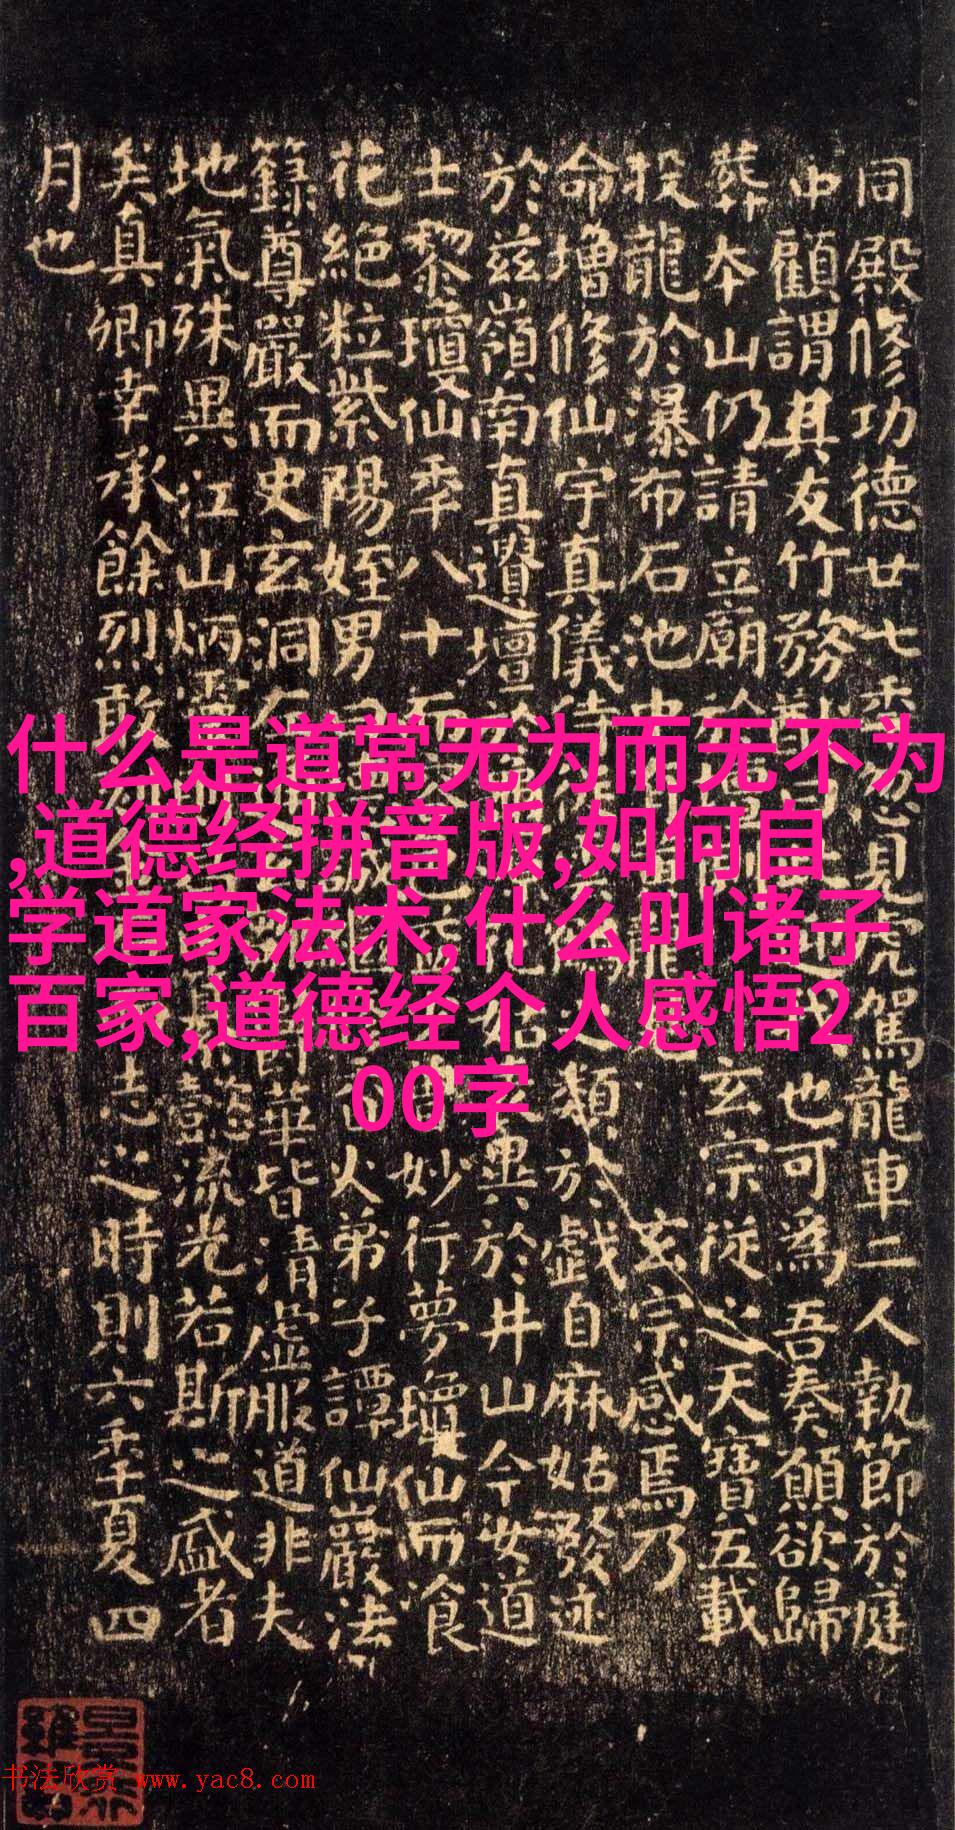 什么是道常无为而无不为
,道德经拼音版,如何自
学道家法术,什么叫诸子
百家,道德经个人感悟2
00字
同殿修功德廿七忽見虎駕龍車二人執節於庭
中顧謂其友竹務猷曰也可為吾奏願欲歸
葬本山仍請立廟於玄宗從之天寶五載
投龍於瀑布石池中玄宗感焉乃
命增修仙宇真儀侍類於戲自麻姑發迹
於茲嶺南真遺壇異於井山今女道
士黎瓊仙年八十而妙行夢瓊仙而飡
花絕粒紫陽姪男曰誠火弟子譚仙巖法
籙尊嚴而史玄洞左華皆清虛服道非夫
地氣殊異江山炳靈懿流光若斯之盛者
矣真卿幸承餘烈敢志之時則六年夏四
月也
书法欣赏 www.yac8.com